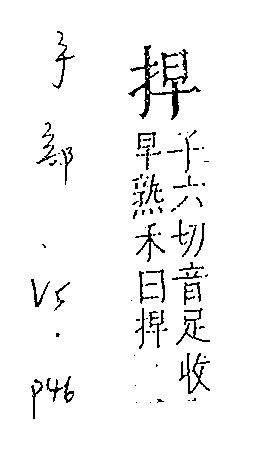 捍
千六切音足收
早熟禾曰捍
手部、V5.P46